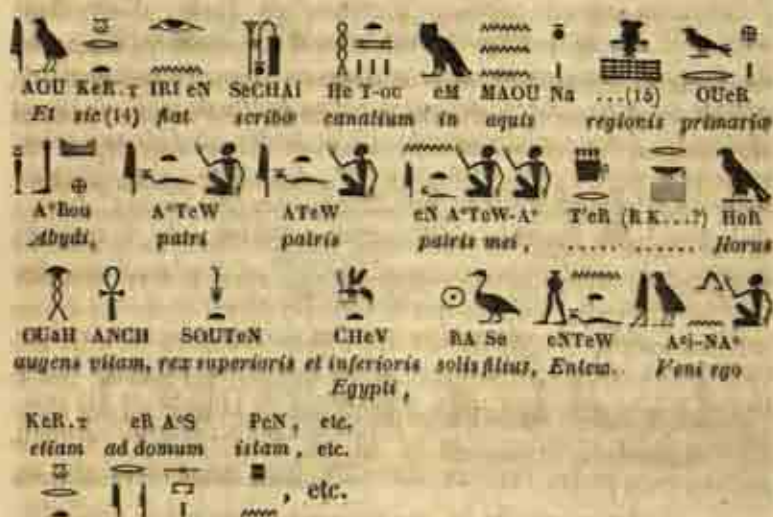 AOU KeR.T IRI eN SeCHAI He T-ou eM MAOU Na ...(15) OUeR
Et sic (14) fiat scribæ canalium in aquis regionis primariæ
A°Bou A°TeW ATeW eN A°TeW-A° T'eR (R K...?) HoR
Abydi, patri patris patris mei, ..... ...... Horus
OUaH ANCH SOUTeN CHeV RA Se eNTeW A°i-NA°
augens vitam, rex superioris et inferioris solis filius, Entew. Veni ego
Egypti,
KeR.T eR A°S PeN, etc.
etiam ad domum istam, etc.
, etc.